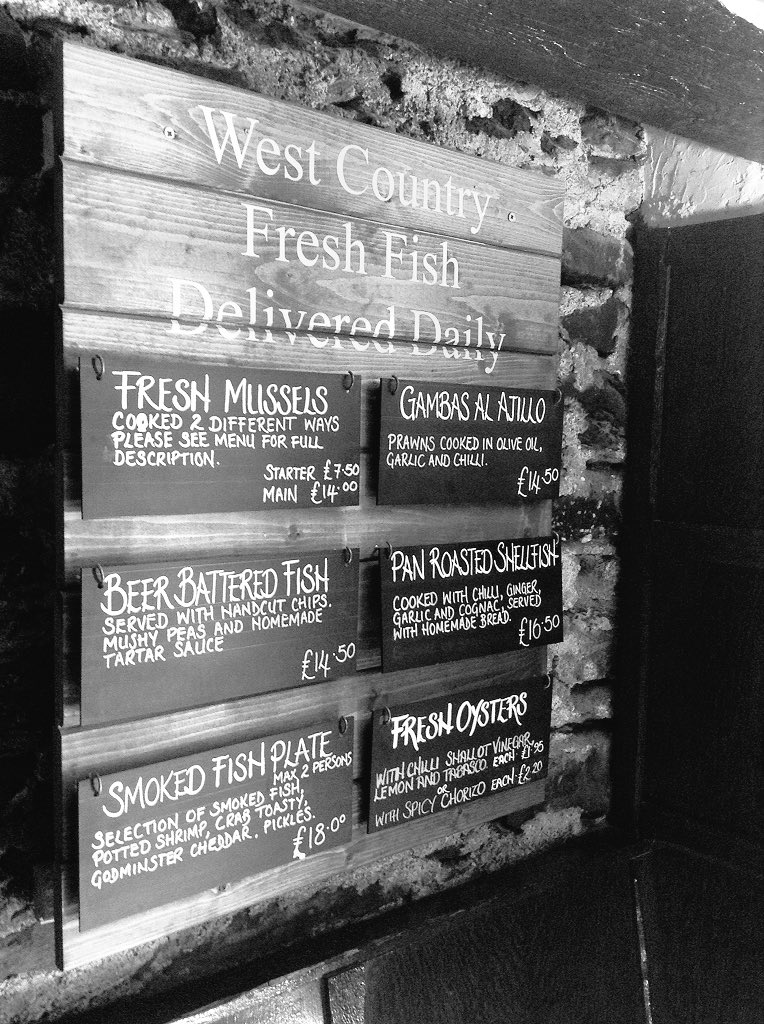 West Country
Fresh Fish
Delivered Daily
FRESH MUSSELS
COOKED 2 DIFFERENT WAYS
PLEASE SEE MENU FOR FULL
DESCRIPTION.
STARTER £7.50
MAIN £14.00
GAMBAS AL AJILLO
PRAWNS COOKED IN OLIVE OIL,
GARLIC AND CHILLI.
£14.50
BEER BATTERED FISH
SERVED WITH HANDCUT CHIPS.
MUSHY PEAS AND HOMEMADE
TARTAR SAUCE
£14.50
PAN ROASTED SHELLFISH
COOKED WITH CHILLI, GINGER,
GARLIC AND COGNAC, SERVED
WITH HOMEMADE BREAD.
£16.50
SMOKED FISH PLATE
MAX 2 PERSONS
SELECTION OF SMOKED FISH,
POTTED SHRIMP, CRAB TOASTY,
GODMINSTER CHEDDAR. PICKLES.
£18.00
FRESH OYSTERS
WITH CHILLI SHALLOT VINEGAR,
LEMON AND TABASCO. EACH £1.95
OR
WITH SPICY CHORIZO EACH £2.20